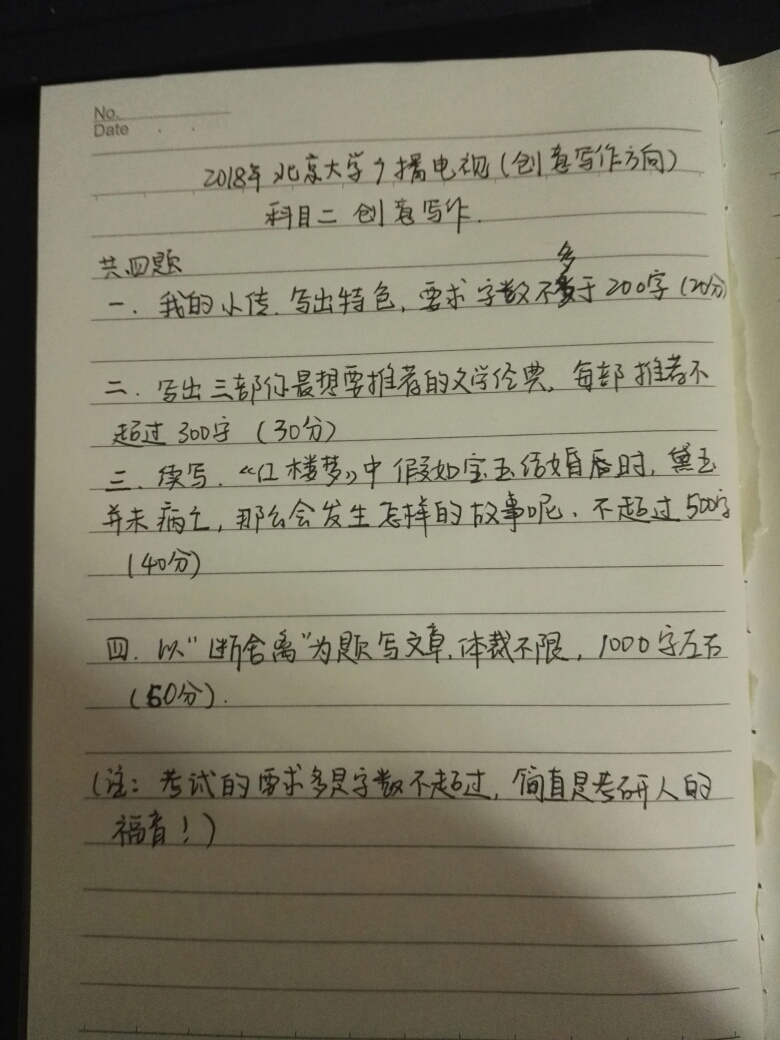 No.
Date
2018年北京大学广播电视(创意写作方向)
科目二 创意写作.
共四题
一. 我的小传. 写出特色, 要求字数不多于200字(20分)
二. 写出三部你最想要推荐的文学经典, 每部推荐不
超过300字 (30分)
三. 续写.《红楼梦》中假如宝玉结婚时, 黛玉
并未病亡, 那么会发生怎样的故事呢. 不超过500字
(40分)
四. 以"断舍离"为题写文章, 体裁不限, 1000字左右
(60分).
(注: 考试的要求多是字数不超过, 简直是考研人的
福音!)